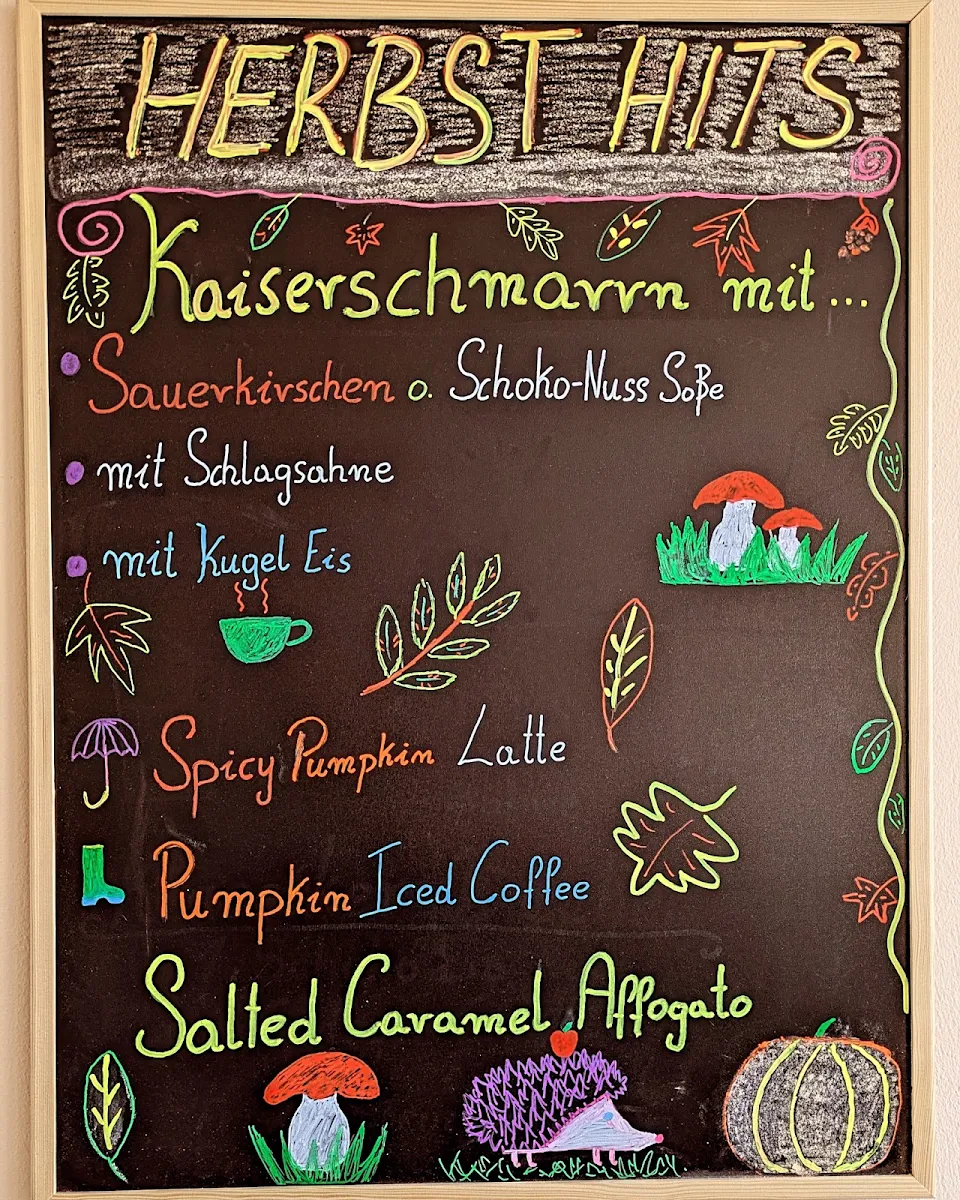 HERBST HITS
Kaiserschmarrn mit...
Sauerkirschen o. Schoko-Nuss Soße
mit Schlagsahne
mit Kugel Eis
Spicy Pumpkin Latte
Pumpkin Iced Coffee
Salted Caramel Affogato